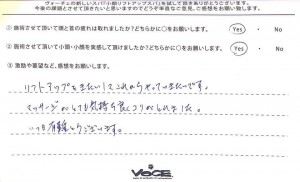 ヴォーチェの新しいスパ「小顔リフトアップスパ」を試して頂きありがとうございます。
今後の課題とさせて頂きたいと思いますのでどうぞ率直なご意見、ご感想をお願い致します。
① 施術させて頂いて頭と首の疲れは取れましたか?どちらかに○をお願いします。 Yes ・ No
② 施術させて頂いて小頭・小顔を実感して頂けましたか?どちらかに○をお願いします。 Yes ・ No
③ 激励や要望など、感想をお願い致します。
リフトアップも
マッサージがとても気持ち良くコリがとれました。
いつも有難うございます。
VOCE